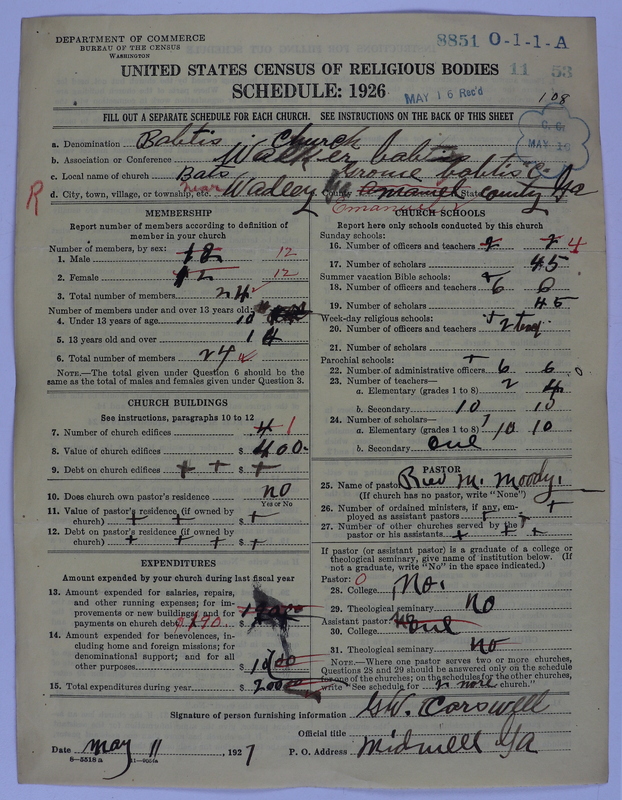 DEPARTMENT OF COMMERCE
BUREAU OF THE CENSUS
WASHINGTON
8851 0-1-1-A
11 53
UNITED STATES CENSUS OF RELIGIOUS BODIES
SCHEDULE: 1926
MAY 16 Rec'd
108
FILL OUT A SEPARATE SCHEDULE FOR EACH CHURCH. SEE INSTRUCTIONS ON THE BACK OF THIS SHEET
a. Denomination Babtis church
b. Association or Conference Walker babtis
c. Local name of church Grove babtis C.
R
d. City, town, village, or township, etc. near Wadley County Emanuel State county Ga
Emanuel
MEMBERSHIP
Report number of members according to definition of member in your church
Number of members, by sex:
1. Male 12 12
2. Female 12 12
3. Total number of members 24
Number of members under and over 13 years old:
4. Under 13 years of age 10
5. 13 years old and over 14
6. Total number of members 24
NOTE.—The total given under Question 6 should be same as the total of males and females given under Question 3.
CHURCH BUILDINGS
See instructions, paragraphs 10 to 12
7. Number of church edifices 1
8. Value of church edifices $ 400.
9. Debt on church edifices $ +
10. Does church own pastor's residence no
Yes or No
11. Value of pastor's residence (if owned by church) + + $ +
12. Debt on pastor's residence (if owned by church) + + + $ +
EXPENDITURES
Amount expended by your church during last fiscal year
13. Amount expended for salaries, repairs, and other running expenses; for improvements or new building; and for payments on church debt $190. $
14. Amount expended for benevolences, including home and foreign missions; for denominational support; and for all other purposes $ 1000
15. Total expenditures during year $ 20000
CHURCH SCHOOLS
Report here only schools conducted by this church
Sunday schools:
16. Number of officers and teachers 2 2 4
17. Number of scholars 45
Summer vacation Bible schools:
18. Number of officers and teachers 6 6
19. Number of scholars 45
Week-day religious schools:
20. Number of officers and teachers 2
21. Number of scholars
Parochial schools:
22. Number of administrative officers 6 6 0
23. Number of teachers—
a. Elementary (grades 1 to 8) 2 4
b. Secondary 10 10
24. Number of scholars—
a. Elementary (grades 1 to 8) 10 10
b. Secondary one
PASTOR
25. Name of pastor M. Moody.
(If church has no pastor, write "None")
26. Number of ordained ministers, if any, employed as assistant pastors + +
27. Number of other churches served by the pastor or his assistants + + +
If pastor (or assistant pastor) is a graduate of a college or theological seminary, give name of institution below. (If not a graduate, write "No" in the space indicated.)
Pastor: 0
28. College No.
29. Theological seminary no
Assistant pastor:
30. College one
31. Theological seminary no
NOTE.—Where one pastor serves two or more churches, Questions 28 and 29 should be answered only on the schedule for one of the churches; on the schedules for the other churches, write "See schedule for no more church."
Signature of person furnishing information G.W. Carswell
Official title
Date may 11, 1927 P. O. Address midvill Ga
8—5518 a